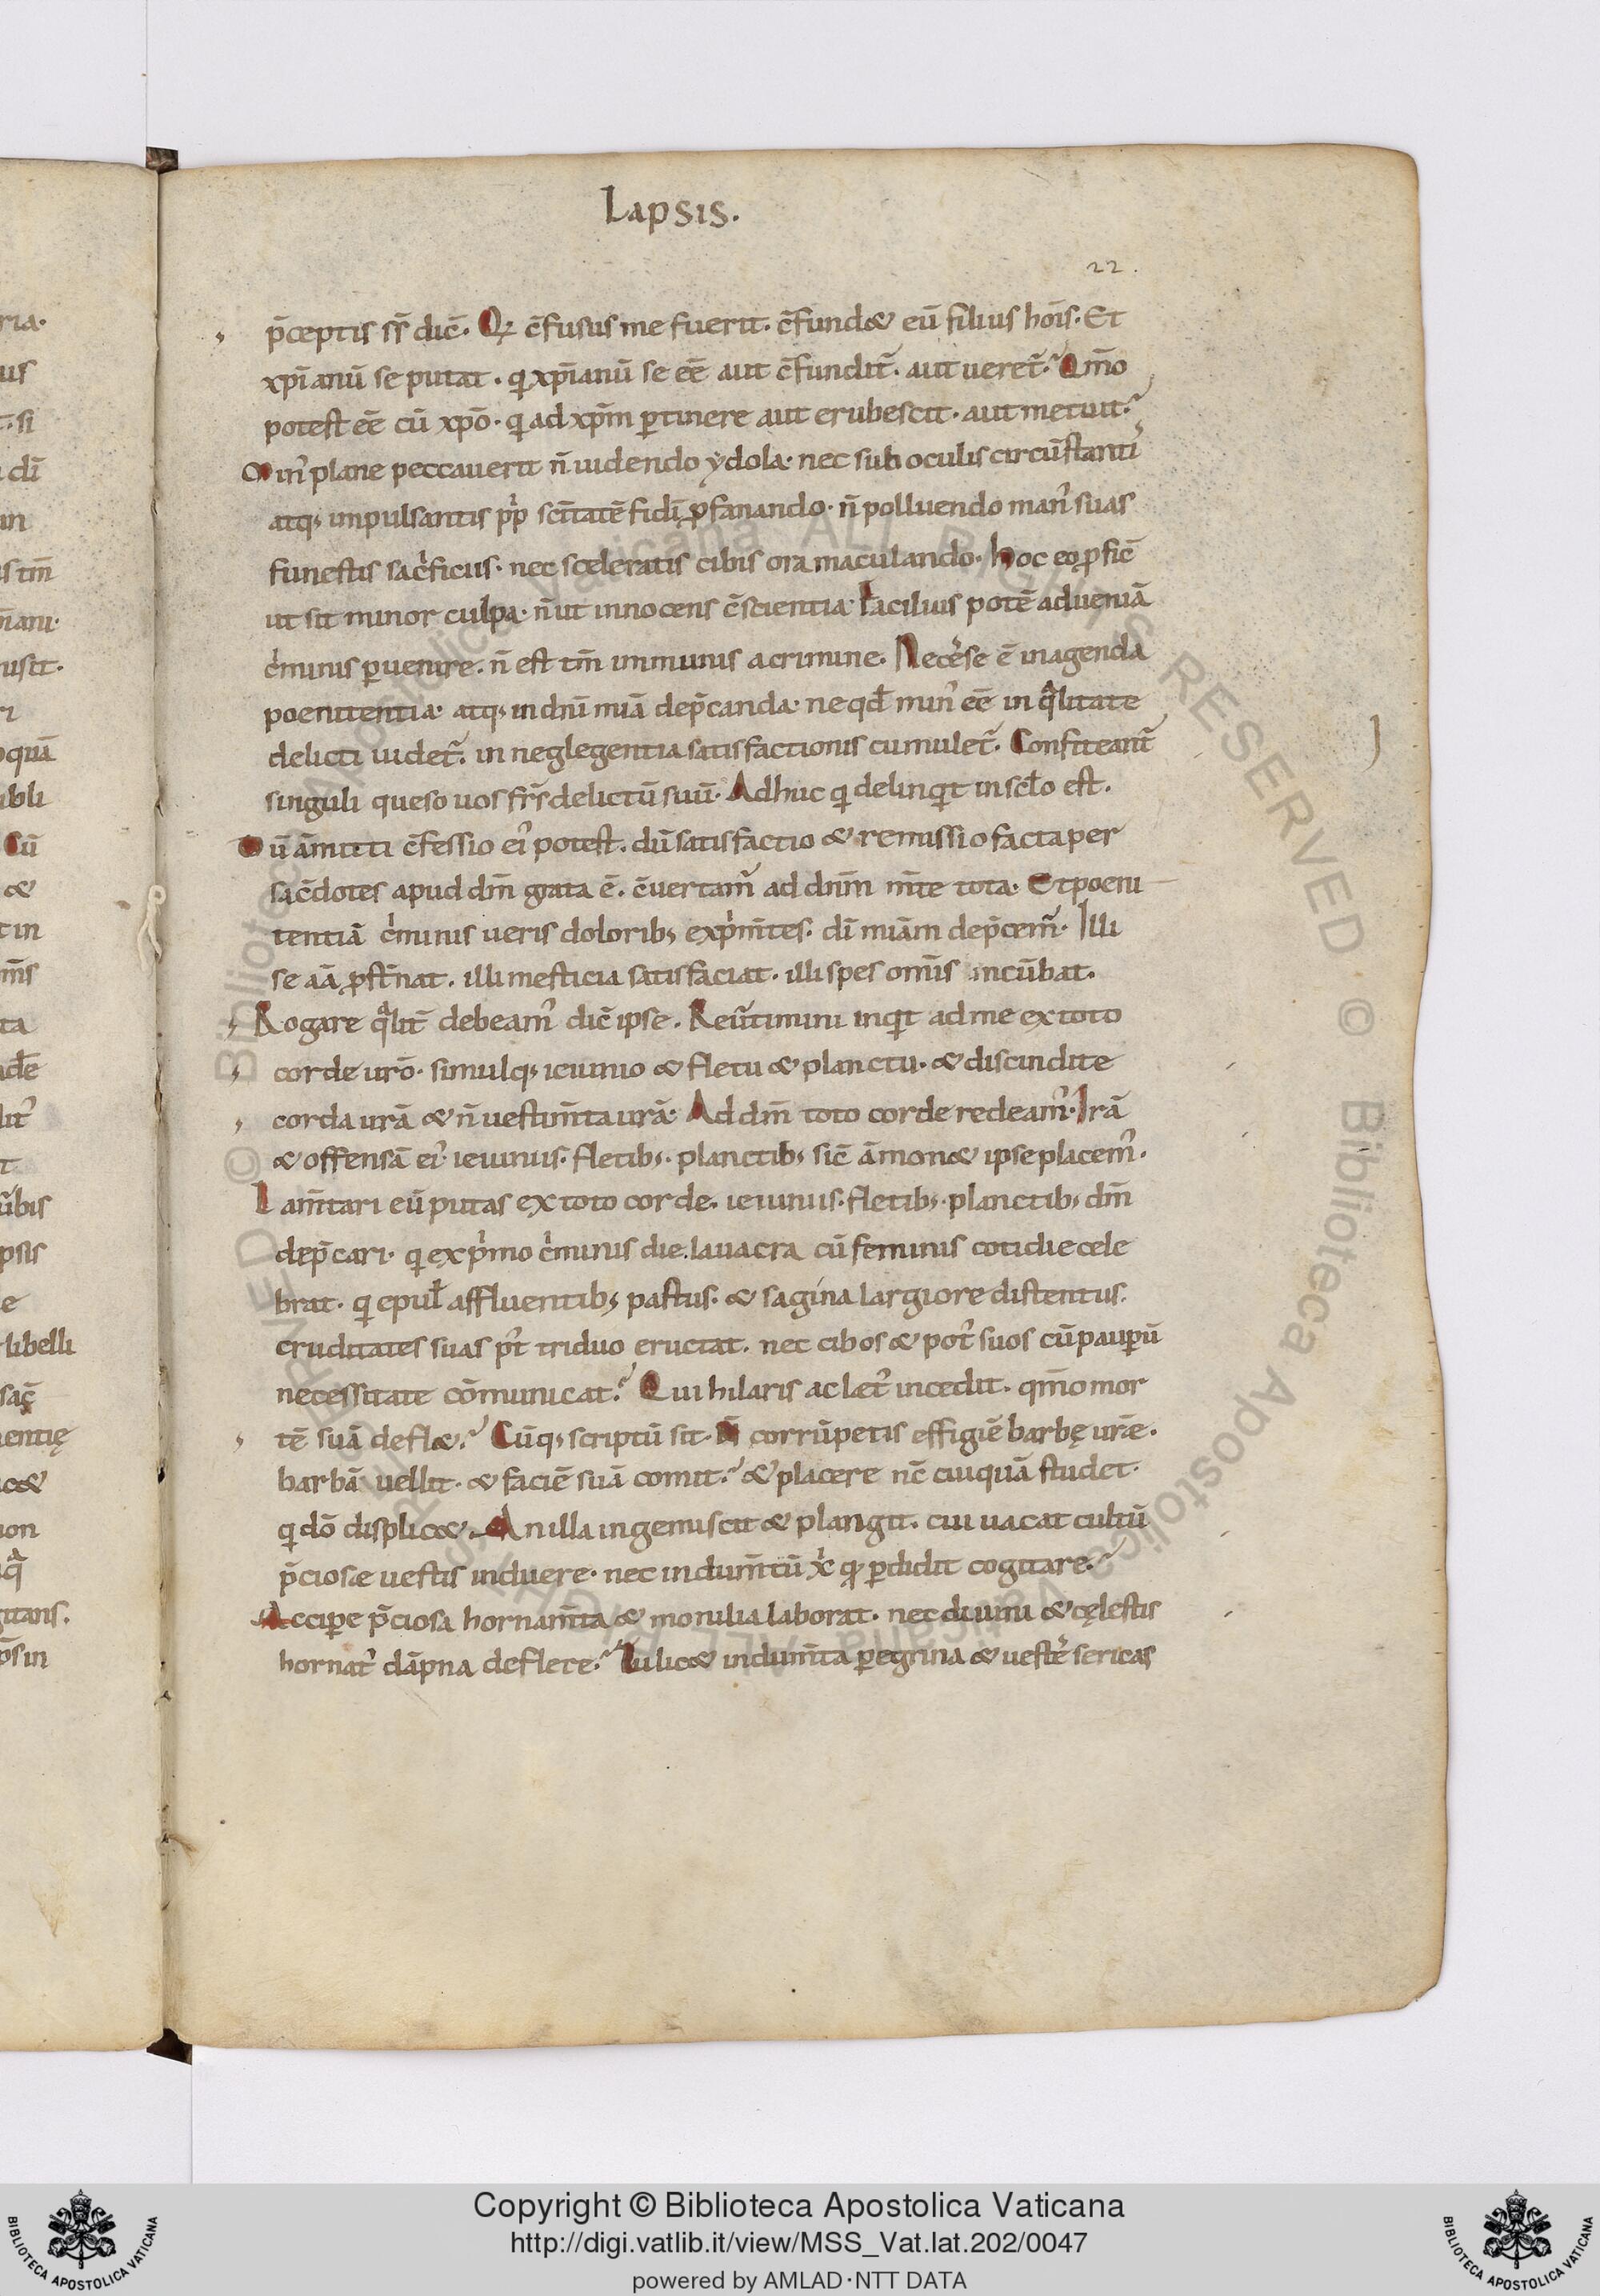 Lapsis.
22.
p̄ceptis sr̄ dic̄. Qꝛ c̄fusus me fuerit. c̄fund& eū filius hoīs. Et
xp̄ianū se putat. q̄ xp̄ianū se eē aut c̄fundit̄. aut ueret̄. Qm̄o
potest eē cū xp̄o. q̄ ad xp̄m ꝑtinere aut erubescit. aut metuit.
Min᾽ plane peccauerit n̄ uidendo ydola. nec sub oculis circūstanti
atq; impulsantis pp̄ł sc̄itatē fidī ꝓfanando. n̄ polluendo man᾽ suas
funestis sac̓ficiis. nec sceleratis cibis ora maculando. hoc eo ꝓfic̄
ut sit minor culpa. n̄ ut innocens c̄scientia. Facilius potē ad ueniā
c̓minis ꝑuenire. n̄ est tm̄ immunis a crimine. Nec̄se ē in agenda
poenitentia. atq; in dn̄i miā dep̄canda. ne qd̄ min᾽ eē in q̄litate
delicti uidet̄. in neglegentia satisfactionis cumulet̄. Confiteant̄
singuli queso uos fr̄s delictū suū. Adhuc q̄ delinq̄t in scl̄o est.
Dū āmitti c̄fessio ei᾽ potest. dū satisfactio & remissio facta per
sac̄dotes apud dm̄ grata ē. c̄uertam̄ ad dnm̄ m̄te tota. Et poeni
tentiā c̓minis ueris dolorib; exp̓m̄tes. dī miām dep̄cem̄. Illi
se aā ꝓst̄nat. illi mesticia satisfaciat. illi spes om̄is incūbat.
Rogare q̄lit̄ debeam᾽ dic̄ ipse. Reūtimini inq̄t ad me ex toto
corde urō. simulq; ieiunio & fletu & planctu. & discindite
corda urā & n̄ uestim̄ta urā. Ad dm̄ toto corde redeam᾽. Irā
& offensā ei᾽ ieiuniis. fletib;. planctib; sic̄ āmon& ipse placem᾽.
Lam̄tari eū putas ex toto corde. ieiuniis. fletib;. planctib; dm̄
dep̄cari. q̄ ex p̓mo c̓minis die. lauacra cū feminis cotidie cele
brat. q̄ epul̄ affluentib; pastus. & sagina largiore distentus.
cruditates suas p᾽t triduo eructat. nec cibos & pot᾽ suos cū pauꝑū
necessitate cōmunicat. Qui hilaris ac laet᾽ incedit. qm̄o mor
tē suā defl&. Cūq; scriptū sit. N̄ corrūpetis effigiē barbę urē.
barbā uellit. & faciē suā comit. & placere nc̄ cuiquā studet.
q̄ dō displic&. An illa ingemiscit & plangit. cui uacat cultū
p̄ciosae uestis induere. nec indum̄tū xp̄i qđ ꝑdidit cogitare.
Accipe p̄ciosa hornam̄ta & monilia laborat. nec diuini & cęlestis
hornat᾽ dāpna deflere. Tu lic& indum̄ta ꝑegrina & uestē sericas
Copyright © Biblioteca Apostolica Vaticana
http://digi.vatlib.it/view/MSS_Vat.lat.202/0047
powered by AMLAD·NTT DATA
BIBLIOTECA APOSTOLICA VATICANA
BIBLIOTECA APOSTOLICA VATICANA